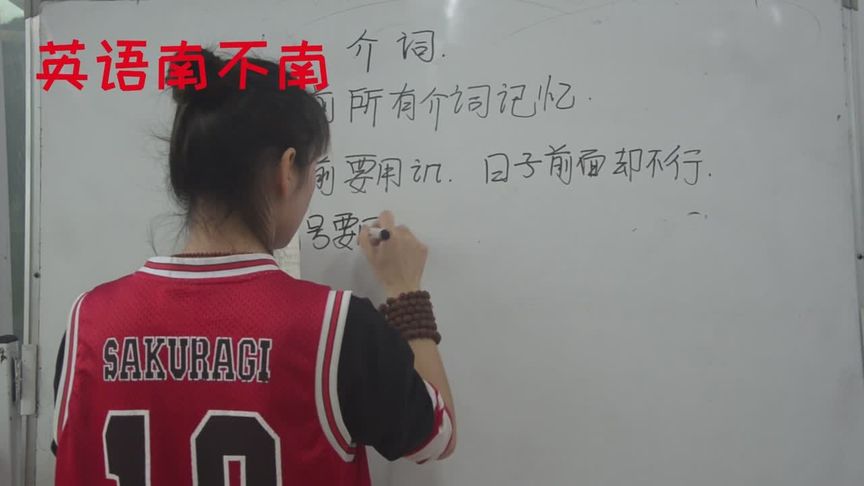 英语南不南
介词.
前所有介词记忆.
前要用in. 日子前面却不行.
号要
SAKURAGI
10